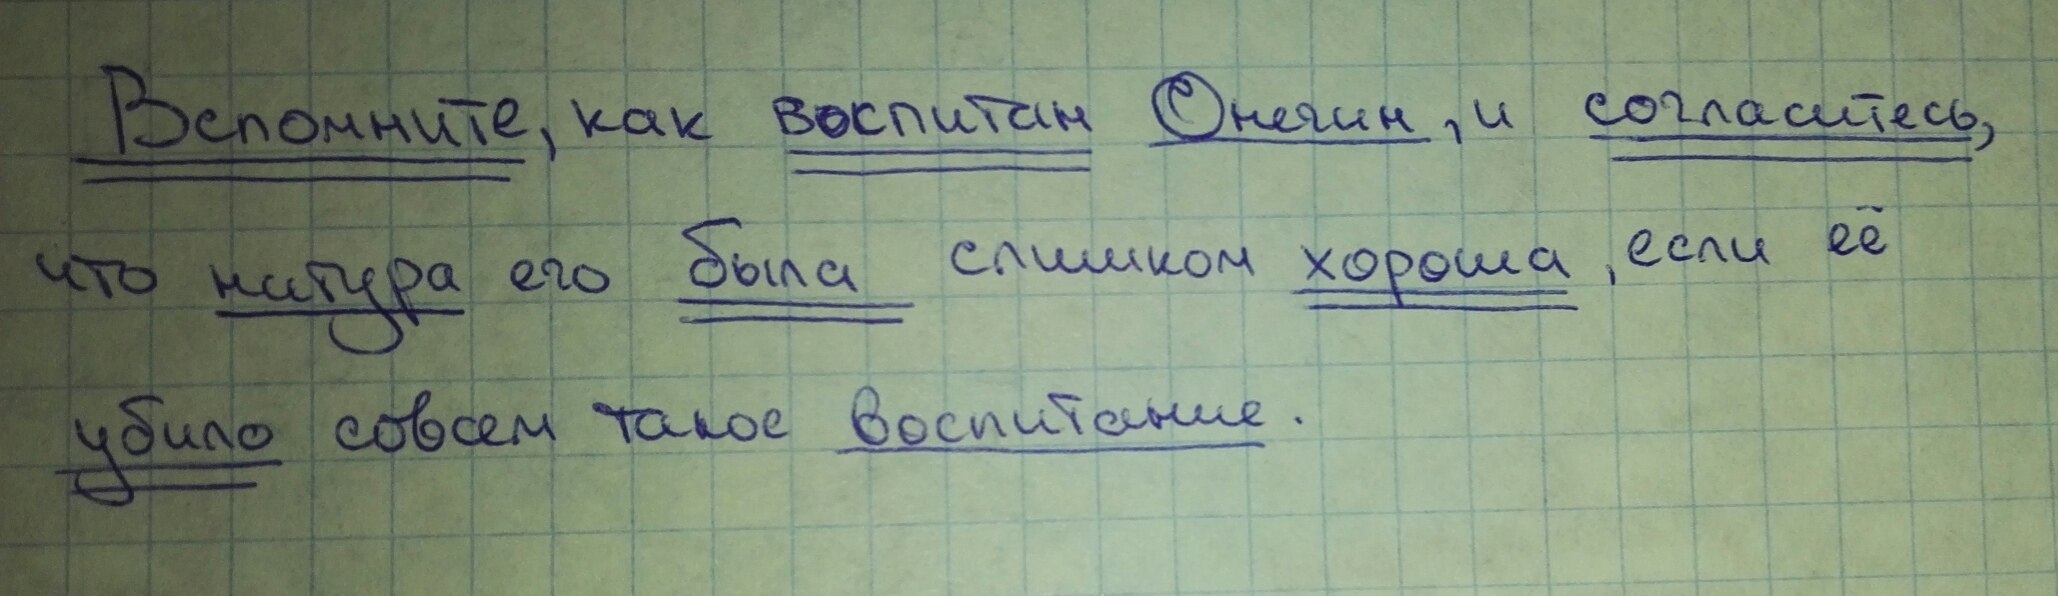 Вспомните, как воспитан Онегин, и согласитесь,
что натура его была слишком хороша, если её
убило совсем такое воспитание.